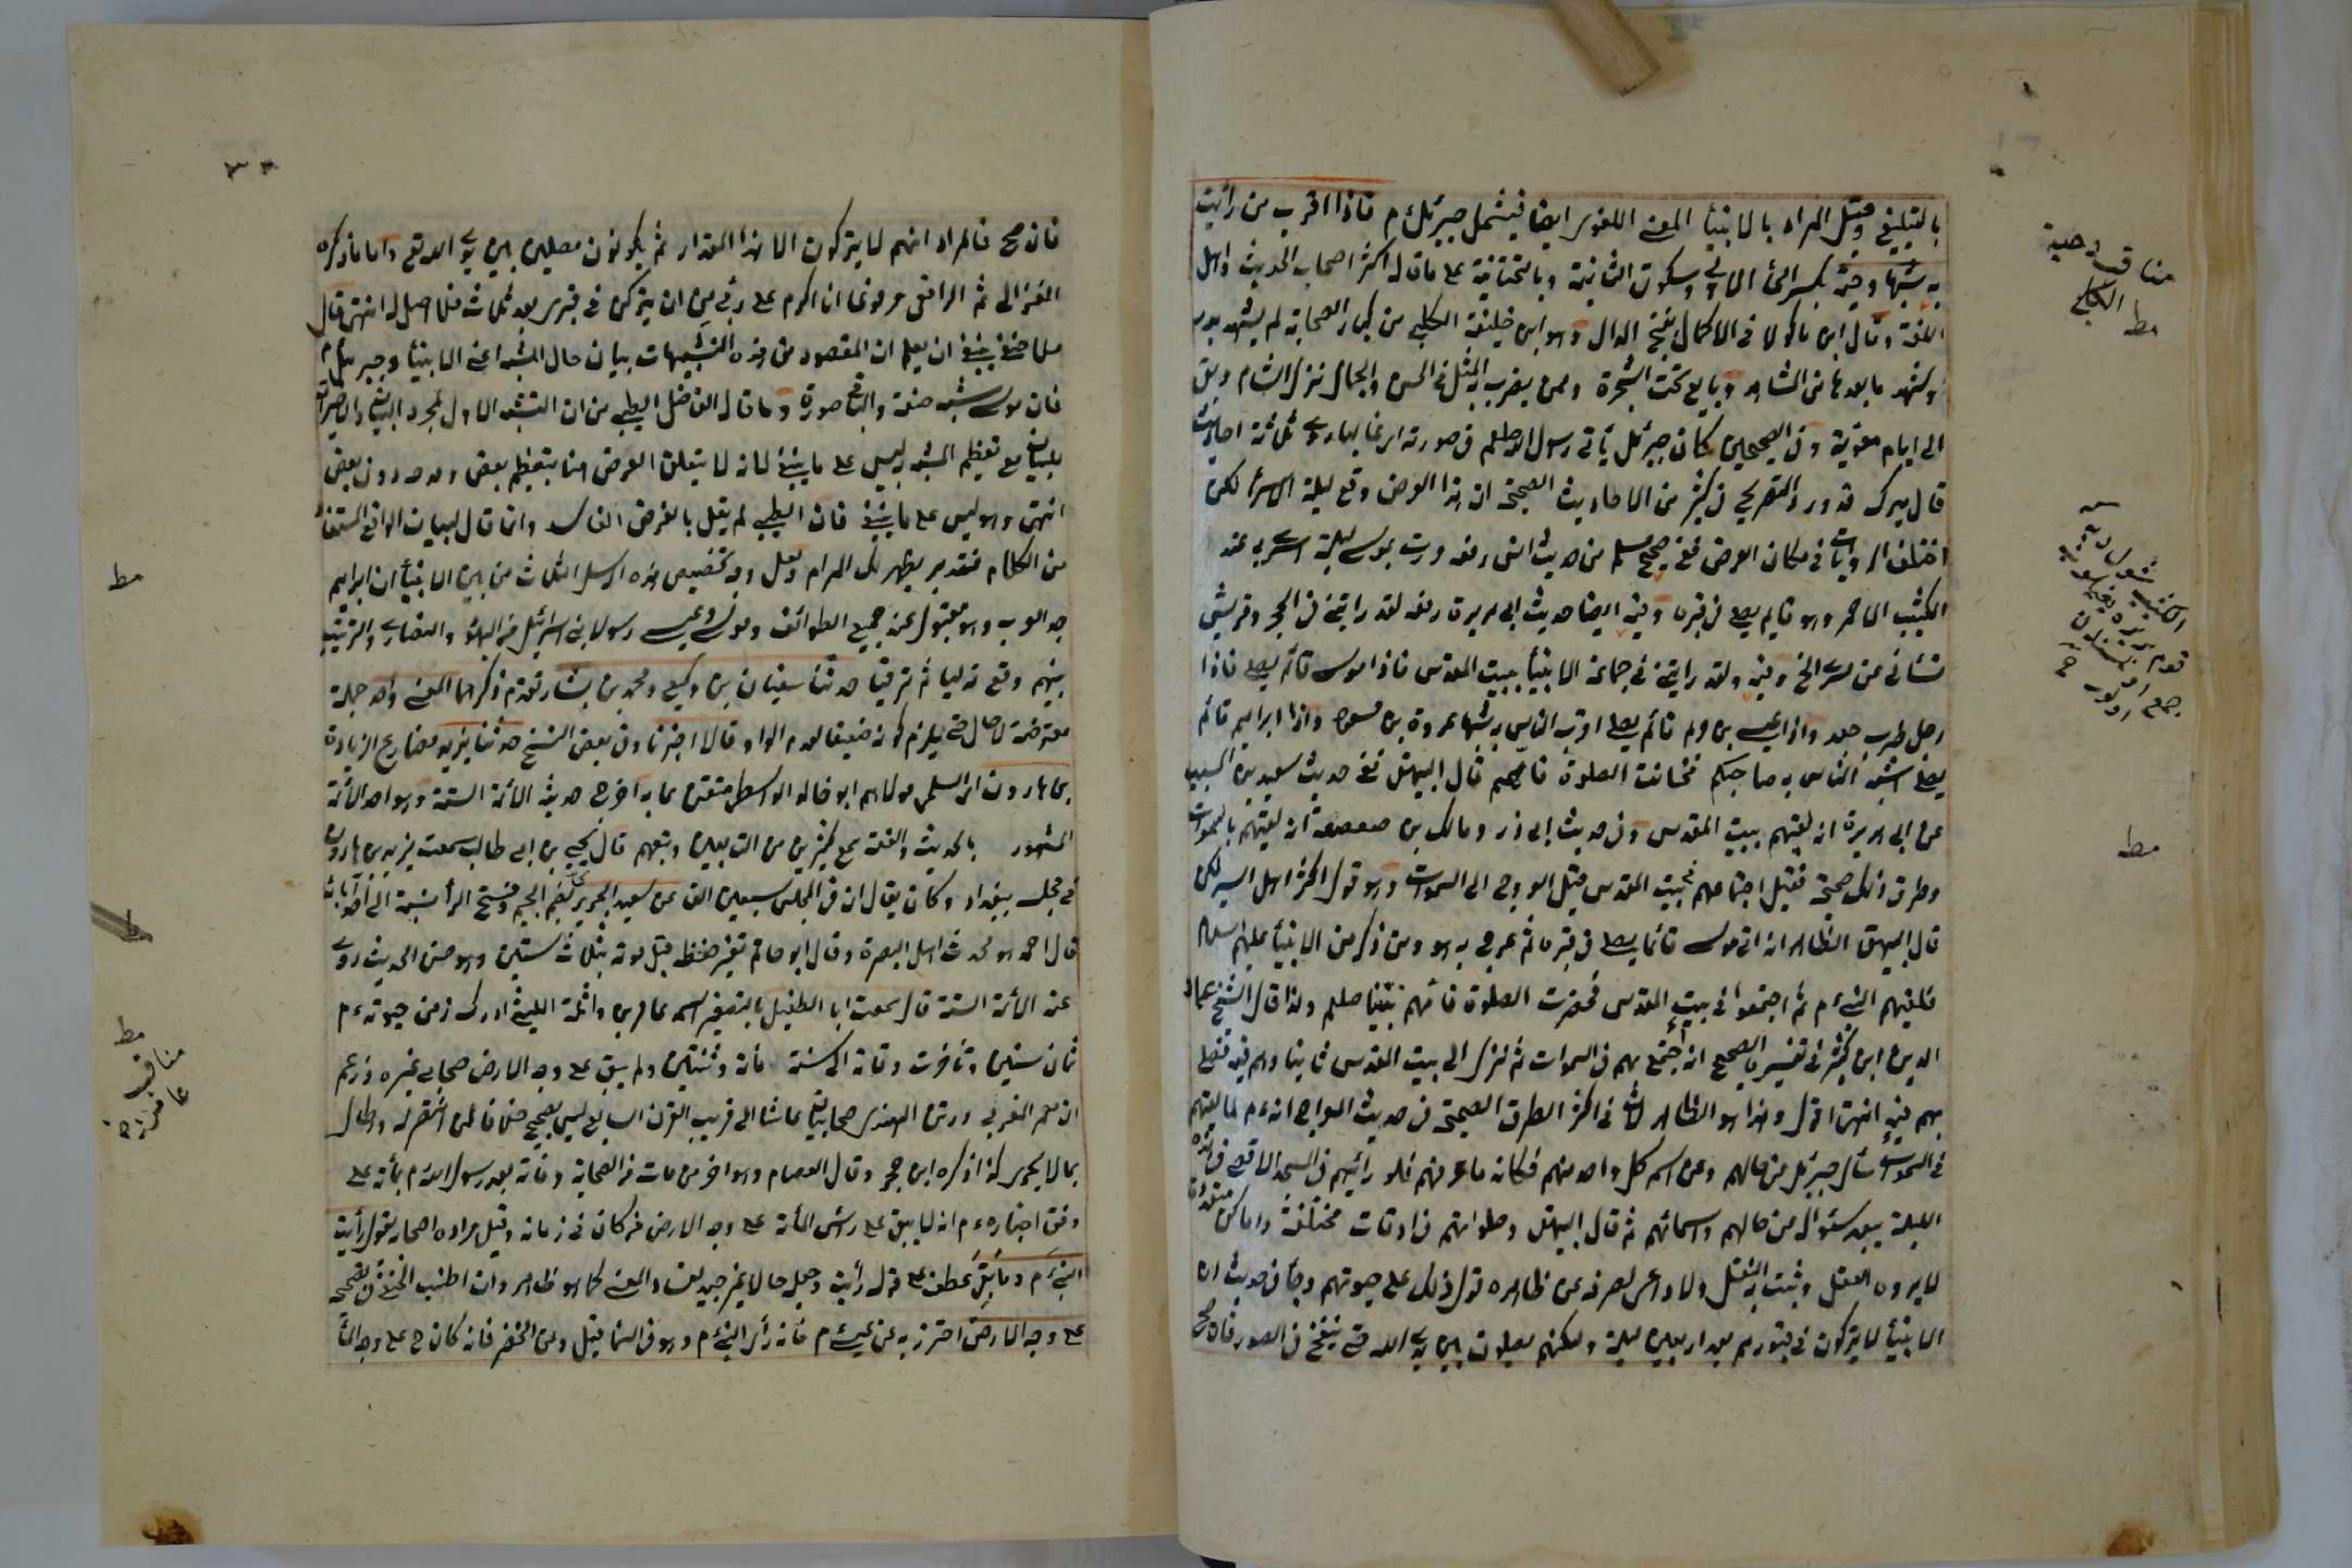 بالتبليغ وقيل المراد بالانبياء المعنى اللغوي ايضا فيشمل جبرئيل م فاذا اقرب من رأيت
به شبها دحية بكسر الدال الاولى وسكون الثانية وبالتحتانية على ما قاله اكثر اصحاب الحديث واهل
اللغة وقال ابن ماكولا في الاكمال بفتح الدال وهو ابن خليفة الكلبي من كبار الصحابة لم يشهد بدرا
وشهد ما بعدها من المشاهد وبايع تحت الشجرة وممن يضرب به المثل في الحسن والجمال نزل الشام وبقي
الى ايام معوية وفي الصحيحين كان جبرئيل يأتي رسول الله صلعم في صورته
قال ميرك قد ورد التصريح في كثير من الاحاديث الصحيحة ان هذا العرض وقع ليلة الاسراء لكن
اختلف الروايات في مكان العرض ففي صحيح مسلم من حديث انس رفعه مررت بموسى ليلة اسري بي عند
الكثيب الاحمر وهو قايم يصلي في قبره وفيه ايضا حديث ابي هريرة رفعه لقد رايتني في الحجر وقريش
تسألني عن مسراي الخ وفيه ولقد رايتني في جماعة الانبياء ببيت المقدس فاذا موسى قائم يصلي فاذا
رجل ضرب جعد واذا عيسى بن مريم قائم يصلي اقرب الناس به شبها عروة بن مسعود واذا ابراهيم قائم
يصلي اشبه الناس به صاحبكم فحانت الصلوة فاممتهم قال البيهقي ففي حديث سعيد بن المسيب
عن ابي هريرة انه لقيهم ببيت المقدس وفي حديث ابي ذر ومالك بن صعصعة انه لقيهم بالسموات
وطرق ذلك صحيحة فقيل اجتماعهم في بيت المقدس قبل العروج الى السموات وهو قول اكثر اهل السير لكن
قال البيهقي الظاهر انه اتى موسى قائما يصلي في قبره ثم عرج به هو ومن ذكر من الانبياء عليهم السلام
فلقيهم النبي م ثم اجتمعوا في بيت المقدس فحضرت الصلوة فامهم نبينا صلعم ولذا قال الشيخ عماد
الدين ابن كثير في تفسيره الصحيح انه اجتمع بهم في السموات ثم نزل الى بيت المقدس ثانيا وهم معه فصلى
بهم فيه انتهى اقول وهذا هو الظاهر لان في اكثر الطرق الصحيحة في حديث المعراج انه م لما لقيهم
في السموات سأل جبرئيل عن حالهم وعن اسم كل واحد منهم فكانه ما عرفهم فلو رآهم في المسجد الاقصى في هذه
الليلة يبعد سئواله عن حالهم واسمائهم ثم قال البيهقي وصلواتهم في اوقات مختلفة واماكن متعددة
لا يرده العقل وثبت به النقل ولا داعي لصرفه عن ظاهره فدل ذلك على حيوتهم وجاء في حديث ان
الانبياء لا يتركون في قبورهم بعد اربعين ليلة ولكنهم يصلون بين يدي الله حتى ينفخ في الصور فان صح
مناقب دحية
الكلبي
مط
مط
فان صح فالمراد انهم لا يتركون الا هذا المقدار ثم يكونون مصلين بين يدي الله تعالى واما ما ذكره
الغزالي ثم الرافعي مرفوعا انا اكرم على ربي من ان يتركني في قبري بعد ثلاث فلا اصل له انتهى قال
ملا حنفي ينبغي ان يعلم ان المقصود من هذه التشبيهات بيان حال المشبه اعني الانبياء وجبرئيل م
فان موسى شبه صفة والباقي صورة وما قال الفاضل الطيبي من ان التشبيه الاول لمجرد البيان والاخيرين
للبيان مع تعظيم المشبه به ليس على ما ينبغي لانه لا يتعلق الغرض هنا بتعظيم بعض دون بعض
انتهى وهو ليس على ما ينبغي فان الطيبي لم يقل بالغرض الفاسد وانما قال لبيان الواقع المستفاد
من الكلام فتدبر يظهر لك المرام ولعل وجه تخصيص هذه الرسل الثلاث من بين الانبياء ان ابراهيم
جد العرب وهو مقبول عند جميع الطوائف وموسى وعيسى رسولا بني اسرائيل من اليهود والنصارى والترتيب
بينهم وقع تدليا ثم ترقيا حدثنا سفيان بن وكيع ومحمد بن بشار تقدم ذكرهما المعنى واحد جملة
معترضة لا حال حتى يلزم كونه ضعيفا لعدم الواو قالا اخبرنا وفي بعض النسخ حدثنا يزيد مضارع الزيادة
بن هارون اي السلمي مولاهم ابو خالد الواسطي متقن عابد اخرج حديثه الائمة الستة وهو احد الائمة
المشهور بالحديث والفقه سمع كثيرين من التابعين وتبعهم قال يحيى بن ابي طالب سمعت يزيد بن هارون
في مجلس ببغداد وكان يقال ان في المجلس سبعين الف عن سعيد الجريري بضم الجيم وفتح الراء نسبة الى احد آبائه
قال احمد هو محدث اهل البصرة وقال ابو حاتم تغير حفظه قبل موته بثلاث سنين وهو حسن الحديث روى
عنه الائمة الستة قال سمعت ابا الطفيل بالتصغير اسمه عامر بن واثلة الليثي ادرك زمن حيوته م
ثمان سنين وتأخرت وفاته الى سنة مائة وثنتين ولم يبق على وجه الارض صحابي غيره وزعم
ان معمر المغربي ورتن الهندي صحابيان عاشا الى قريب القرن السابع ليس بصحيح خلافا لمن انتصر له واطال
بما لا يجدي كذا ذكره ابن حجر وقال العصام وهو اخر من مات من الصحابة وفاته بعد رسول الله م بمائة على
وفق اخباره م انه لا يبقى على رأس المائة على وجه الارض من كان في زمانه وقيل مراده اصحابه يقول رأيت
النبي م وما بقي عطف على قوله رأيت وجعله حالا غير جيد لفسد المعنى كما هو ظاهر وان اطنب الحنفي في تصحيحه
على وجه الارض احترز به عن عيسى م فانه رأى النبي م وهو في السما قيل وعن الخضر فانه كان ح على وجه الماء
مط
مط
مناقب